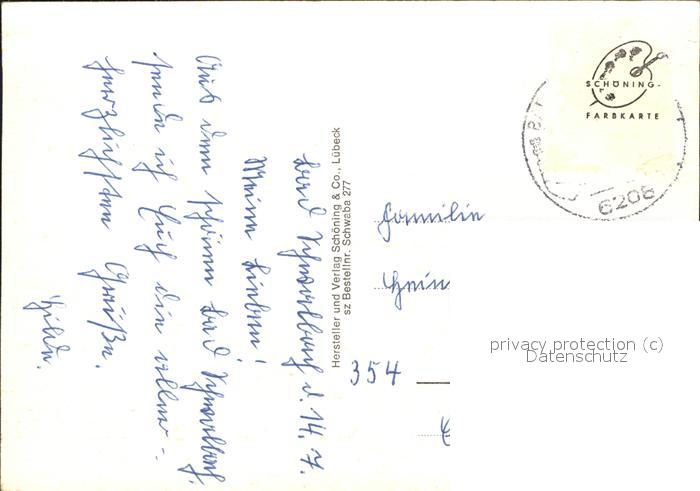 Bad Schwalbach d. 14. 7.
Meine Lieben!
Aus dem schönen Bad Schwalbach,
sende ich Euch die aller-
herzlichsten Grüße.
Hilde.
Hersteller und Verlag Schöning & Co., Lübeck
sz Bestellnr. Schwaba 277
SCHÖNING-
FARBKARTE
6208
Familie
Hein
354
privacy protection (c)
Datenschutz